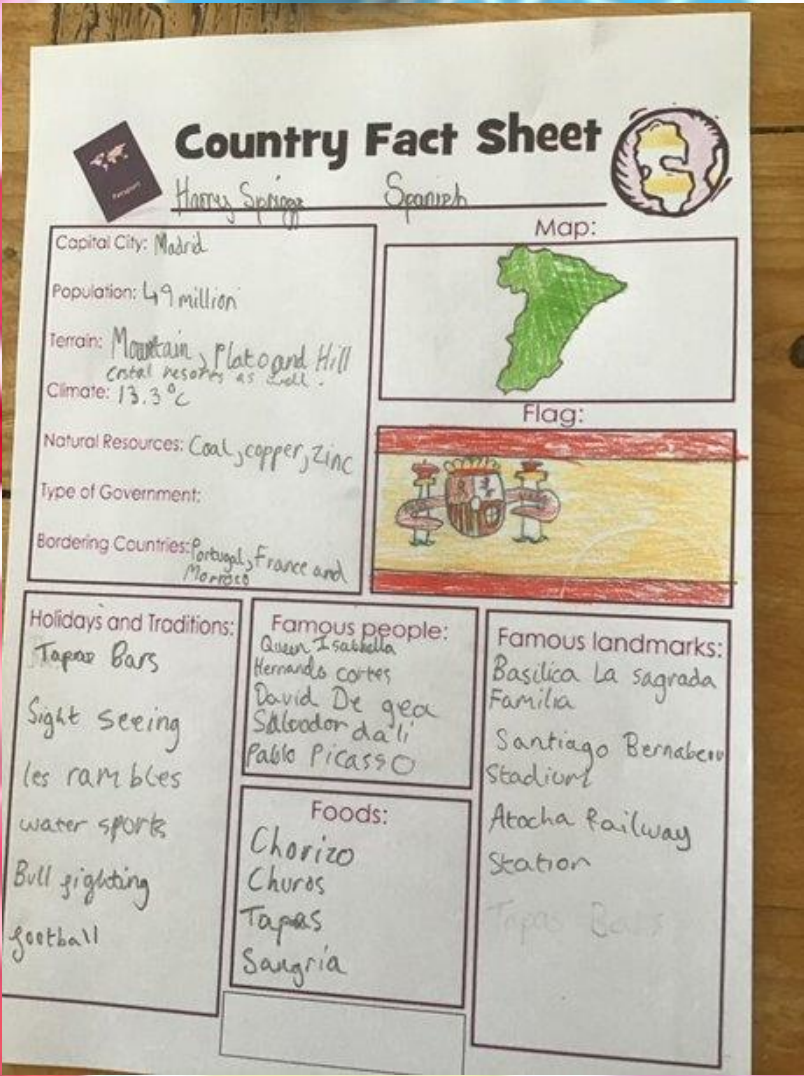 Country Fact Sheet
Passport
Harry Spriggs Spanish
Capital City: Madrid
Population: 49 million
Terrain: Mountain, Plato and Hill
costal resorts as well.
Climate: 13.3°C
Natural Resources: Coal, copper, zinc
Type of Government:
Bordering Countries: Portugal, France and
Morroco
Map:
Flag:
Holidays and Traditions:
Tapas Bars
Sight seeing
les rambles
water sports
Bull fighting
football
Famous people:
Queen Isabbella
Hernando cortes
David De gea
Salvador dali
Pablo Picasso
Foods:
Chorizo
Churos
Tapas
Sangria
Famous landmarks:
Basilica La sagrada
Familia
Santiago Bernabeu
Stadium
Atocha Railway
Station
Tapas Bars